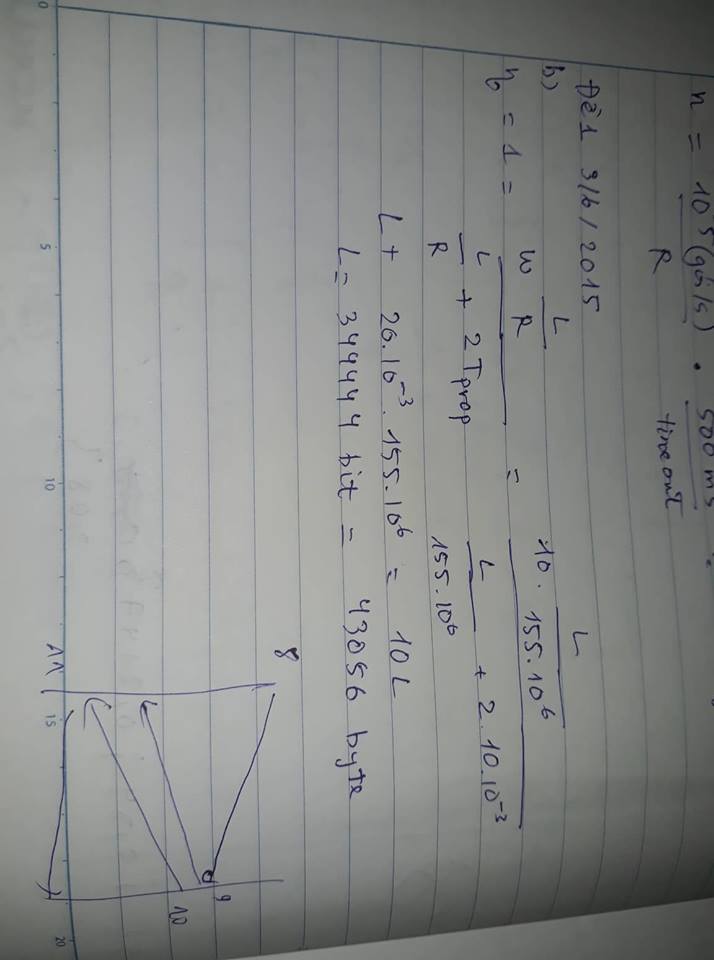 n = 10^5 (gói/s) / R . 500 ms / timeout
Đề 1 3/6/2015
b)
η = 1 = (W L/R) / (L/R + 2 Tprop) = (10. L/155.10^6) / (L/155.10^6 + 2.10.10^-3)
L + 20.10^-3.155.10^6 = 10L
L = 344444 bit = 43056 byte
8
9
10
11
0 5 10 15 20